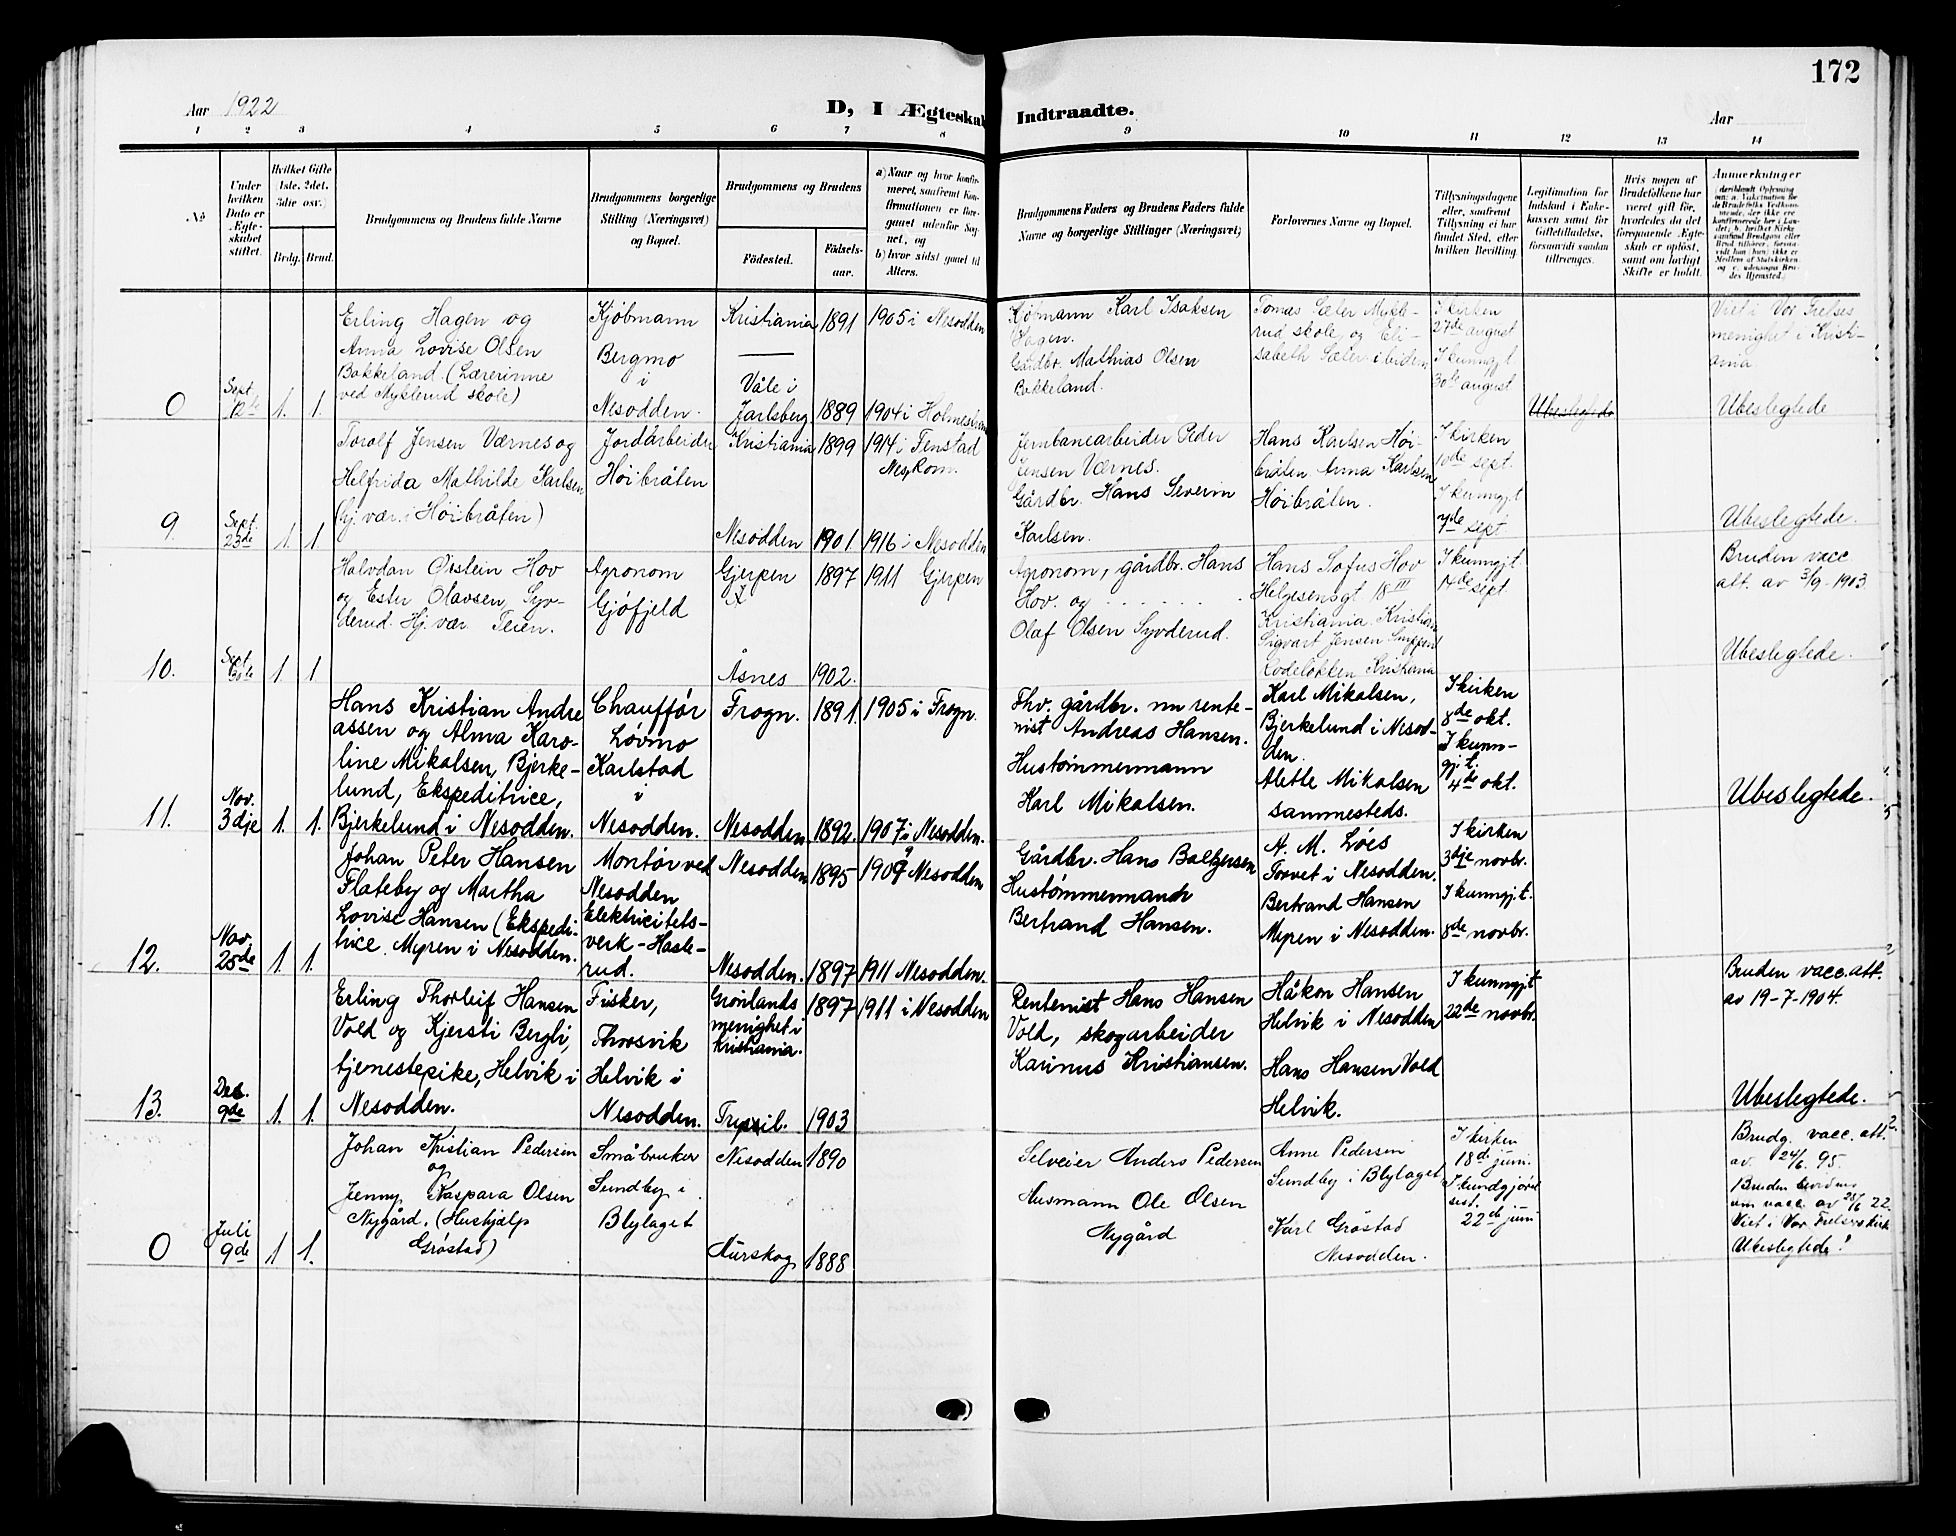 172
Aar 1922
D, I Ægteskab Indtraadte.
Aar
1 2 3 4 5 6 7 8 9 10 11 12 13 14
No
Under
hvilken
Dato er
Ægte-
skabet
stiftet.
Hvilket Gifte
1ste, 2det,
3die osv.)
Brdg.
Brud.
Brudgommens og Brudens fulde Navne
Brudgommens borgerlige
Stilling (Næringsvei)
og Bopæl.
Brudgommens og Brudens
Födested.
Födsels-
aar.
a) Naar og hvor konfir-
meret, saafremt Kon-
firmationen er fore-
gaaet udenfor Sog-
net, og
b) hvor sidst gaaet til
Alters.
Brudgommens Faders og Brudens Faders fulde
Navne og borgerlige Stillinger (Næringsvei)
Forlovernes Navne og Bopæl.
Tillysningsdagene
eller, saafremt
Tillysning ei har
fundet Sted, efter
hvilken Bevilling.
Legitimation for
Indskud i Enke-
kassen samt for
Giftetilladelse,
forsaavidt saadan
tiltrænges.
Hvis nogen af
Brudefolkene har
været gift før,
hvorledes da det
foregaaende Ægte-
skab er opløst,
samt om lovligt
Skifte er holdt.
Anmærkninger
0
Sept.
12te
1. 1.
Erling Hagen og
Anna Lovise Olsen
Bakkeland (Lærerinne
ved Myklerud skole)
Kjøbmann
Bergmo
i
Nesodden.
Kristiania 1891 1905 i Nesodden
Våle i
Jarlsberg 1889 1904 i Holmestrand
Kjøbmann Karl Isaksen
Hagen.
Gårdbr. Mathias Olsen
Bakkeland.
Tomas Sæler Mykle-
rud skole og Eli-
sabeth Sæler ibiden
I kirken
27de august
I kunngjt
30te august
Ubeslegtde
Viet i Vor Frelses
menighet i Kristi-
ania
Ubeslegtede
9.
Sept.
23de
1. 1
Torolf Jensen Værnes og
Helfrida Mathilde Karlsen
(hj. vær. i Höibråten)
Jordarbeider
Höibråten
Kristiania 1899 1914 i Fenstad
Nes, Rom.
Nesodden 1901 1916 i Nesodden
Jernbanearbeider Peder
Jensen Værnes.
Gårdbr. Hans Severin
Karlsen.
Hans Karlsen Höi-
bråten Anna Karlsen
Höibråten.
I kirken
10de sept.
I kunngjt
7de sept.
Ubeslegtede.
10.
Sept.
30te
1 1
Halvdan Östein Hov
og Ester Olavsen, Syv-
derud. Hj. vær. Teien.
Agronom
Gjöfjeld
Gjerpen 1897 1911 Gjerpen
Åsnes 1902.
Agronom, gårdbr. Hans
Hov. og . . . . . . . .
Olaf Olsen Syvderud.
Hans Sofus Hov
Helgesensgt 18 III
Kristiania. Kristian
Sigvart Jensen
Rodeløkken Kristiania
I kunngjt.
14de sept
Bruden vacc.
att. av 3/9-1903.
Ubeslegtede.
11.
Nov.
3dje
1. 1.
Hans Kristian Andre
assen og Alma Karo-
line Mikalsen, Bjerke-
lund, Ekspeditrice,
Bjerkelund i Nesodden.
Chaufför
Lövmo
Karlstad
i
Nesodden.
Frogn. 1891. 1905 i Frogn.
Nesodden. 1892. 1907 i Nesodden.
Fhv. gårdbr. nu rente-
nist Andreas Hansen.
Hustömmermann
Karl Mikalsen.
Karl Mikalsen,
Bjerkelund i Nesod-
den.
Alette Mikalsen
sammesteds.
I kirken
8de okt.
I kunn-
gj.t.
4de okt.
Ubeslegtede.
12.
Nov.
25de
1. 1.
Johan Peter Hansen
Flateby og Martha
Lovise Hansen (Ekspedi-
trice. Myren i Nesodden.
Montör ved
Nesodden
Elektricitets-
verk - Hasle-
rud.
Nesodden 1895 1909 Nesodden
Nesodden. 1897 1911 Nesodden.
Gårdbr. Hans Baltzersen
Hustömmermand
Bertrand Hansen.
A. M. Löes
Torvet i Nesodden.
Bertrand Hansen
Myren i Nesodden.
I kirken
3dje novbr.
I kunngj.t.
8de novbr.
13.
Des.
9de
1 1.
Erling Thorleif Hansen
Vold og Kjersti Bergli,
tjenestepike, Helvik i
Nesodden.
Fisker,
Thorsvik
Helvik i
Nesodden.
Grønlands
menighet i
Kristiania.
1897 1911 i Nesodden
Trysil. 1903
Rentenist Hans Hansen
Vold, skogarbeider
Karinus Kristiansen.
Håkon Hansen
Helvik i Nesodden
Hans Hansen Vold
Helvik.
I kunngjt
22de novbr.
Bruden vacc. att.
av 19-7-1904.
Ubeslegtede.
0
Juli
9de
1 1.
Johan Kristian Pedersen
og
Jenny Kaspara Olsen
Nygård. (Hushjælp
Gröstad)
Småbruker
Sundby i
Blylaget
Nesodden 1890
Aurskog 1888
Selveier Anders Pedersen
Husmann Ole Olsen
Nygård
Anne Pedersen
Sundby i Blylaget
Karl Gröstad
Nesodden.
I kirken
18de juni.
I kundgjörel
sest.
22de juni
Brudg. vacc. att.
av 24/6. 95.
Bruden bevidnes
om vacc. av 25/6 22.
Viet i Vor Frelsers kirk
Ubeslegtede!